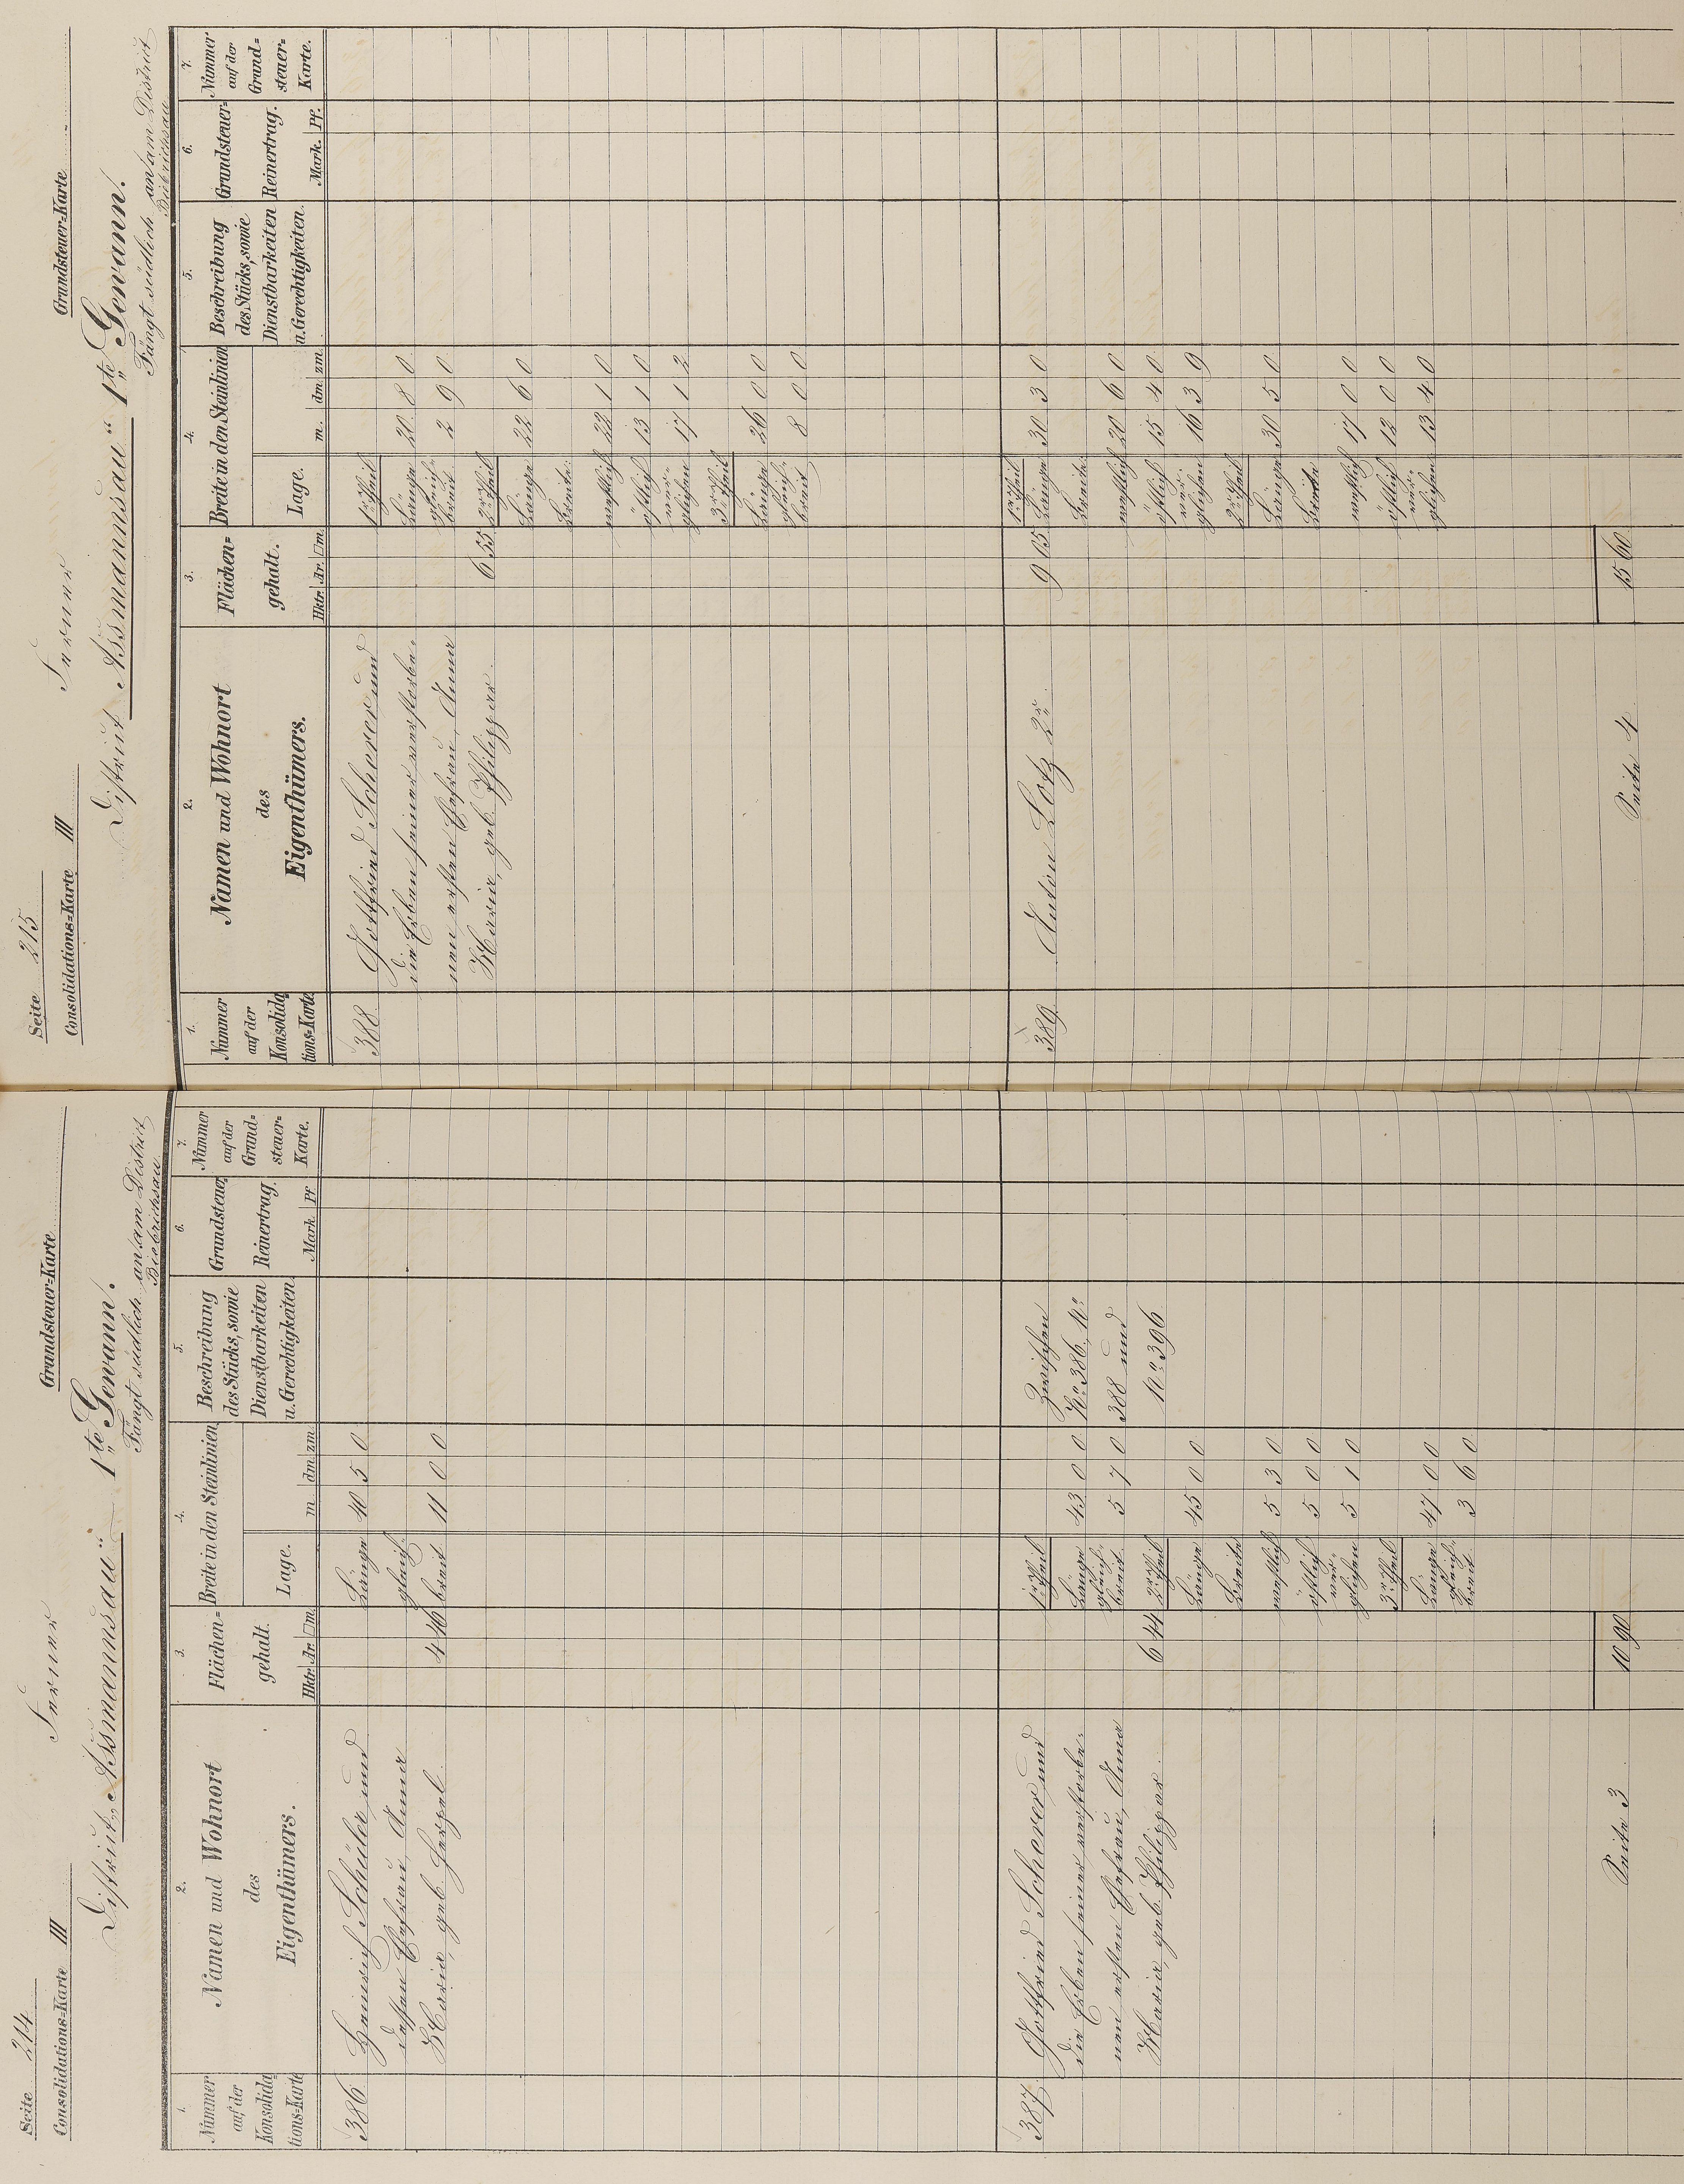 Seite 214
Consolidations=Karte III
Grundsteuer=Karte
Ferner
District „Assmannsau“ 1te Gewann.
Fängt südlich an am District
Biebrichsau
1. 2. 3. 4. 5. 6. 7.
Nummer auf der Konsolidations=Karte
Namen und Wohnort des Eigenthümers.
Flächen=gehalt.
Hktr. Ar. □m.
Breite in den Steinlinien
Lage. m. dm. zm.
Beschreibung des Stücks, sowie Dienstbarkeiten u. Gerechtigkeiten.
Grundsteuer Reinertrag.
Mark. Pf.
Nummer auf der Grund=steuer=Karte.
386 Heinrich Schüler und Länge 40 5 0
dessen Ehefrau, Anna gleich
Maria, geb. 4 46 breit 11 0 0
387 Gottfried Scherer und 1r Theil Zwischen
die Erben seiner verstorbe= Länge 43 0 0 No 386, No
nen ersten Ehefrau, Anna gleich breit 5 7 0 388 und
Maria, geb. Philippar 6 44 2r Theil No 396
Länge 45 0 0
Breite
westlich 5 3 0
östlich 5 0 0
verglichen 5 1 0
3r Theil
Länge 47 0 0
gleich breit 3 6 0
Seite 3 10 90
Seite 215
Consolidations=Karte III
Grundsteuer=Karte
Ferner
District „Assmannsau“ 1te Gewann.
Fängt südlich an am District
Biebrichsau
1. 2. 3. 4. 5. 6. 7.
Nummer auf der Konsolidations=Karte
Namen und Wohnort des Eigenthümers.
Flächen=gehalt.
Hktr. Ar. □m.
Breite in den Steinlinien
Lage. m. dm. zm.
Beschreibung des Stücks, sowie Dienstbarkeiten u. Gerechtigkeiten.
Grundsteuer= Reinertrag.
Mark. Pf.
Nummer auf der Grund=steuer=Karte.
388 Gottfried Scherer und 1r Theil
die Erben seiner verstorbe= Länge 20 8 0
nen ersten Ehefrau, Anna gleich breit 2 9 0
Maria, geb. Philippar 6 55 2r Theil
Länge 22 6 0
Breite:
westlich 22 1 0
östlich 13 1 0
verglichen 17 1 2
3r Theil
Länge 26 0 0
gleich breit 8 0 0
389 Anton Lotz 2r 9 05 1r Theil
Länge 30 3 0
Breite:
westlich 20 6 0
östlich 15 4 0
verglichen 16 3 9
2r Theil
Länge 30 5 0
Breite
westlich 17 0 0
östlich 12 0 0
verglichen 13 4 0
Seite 4 15 60